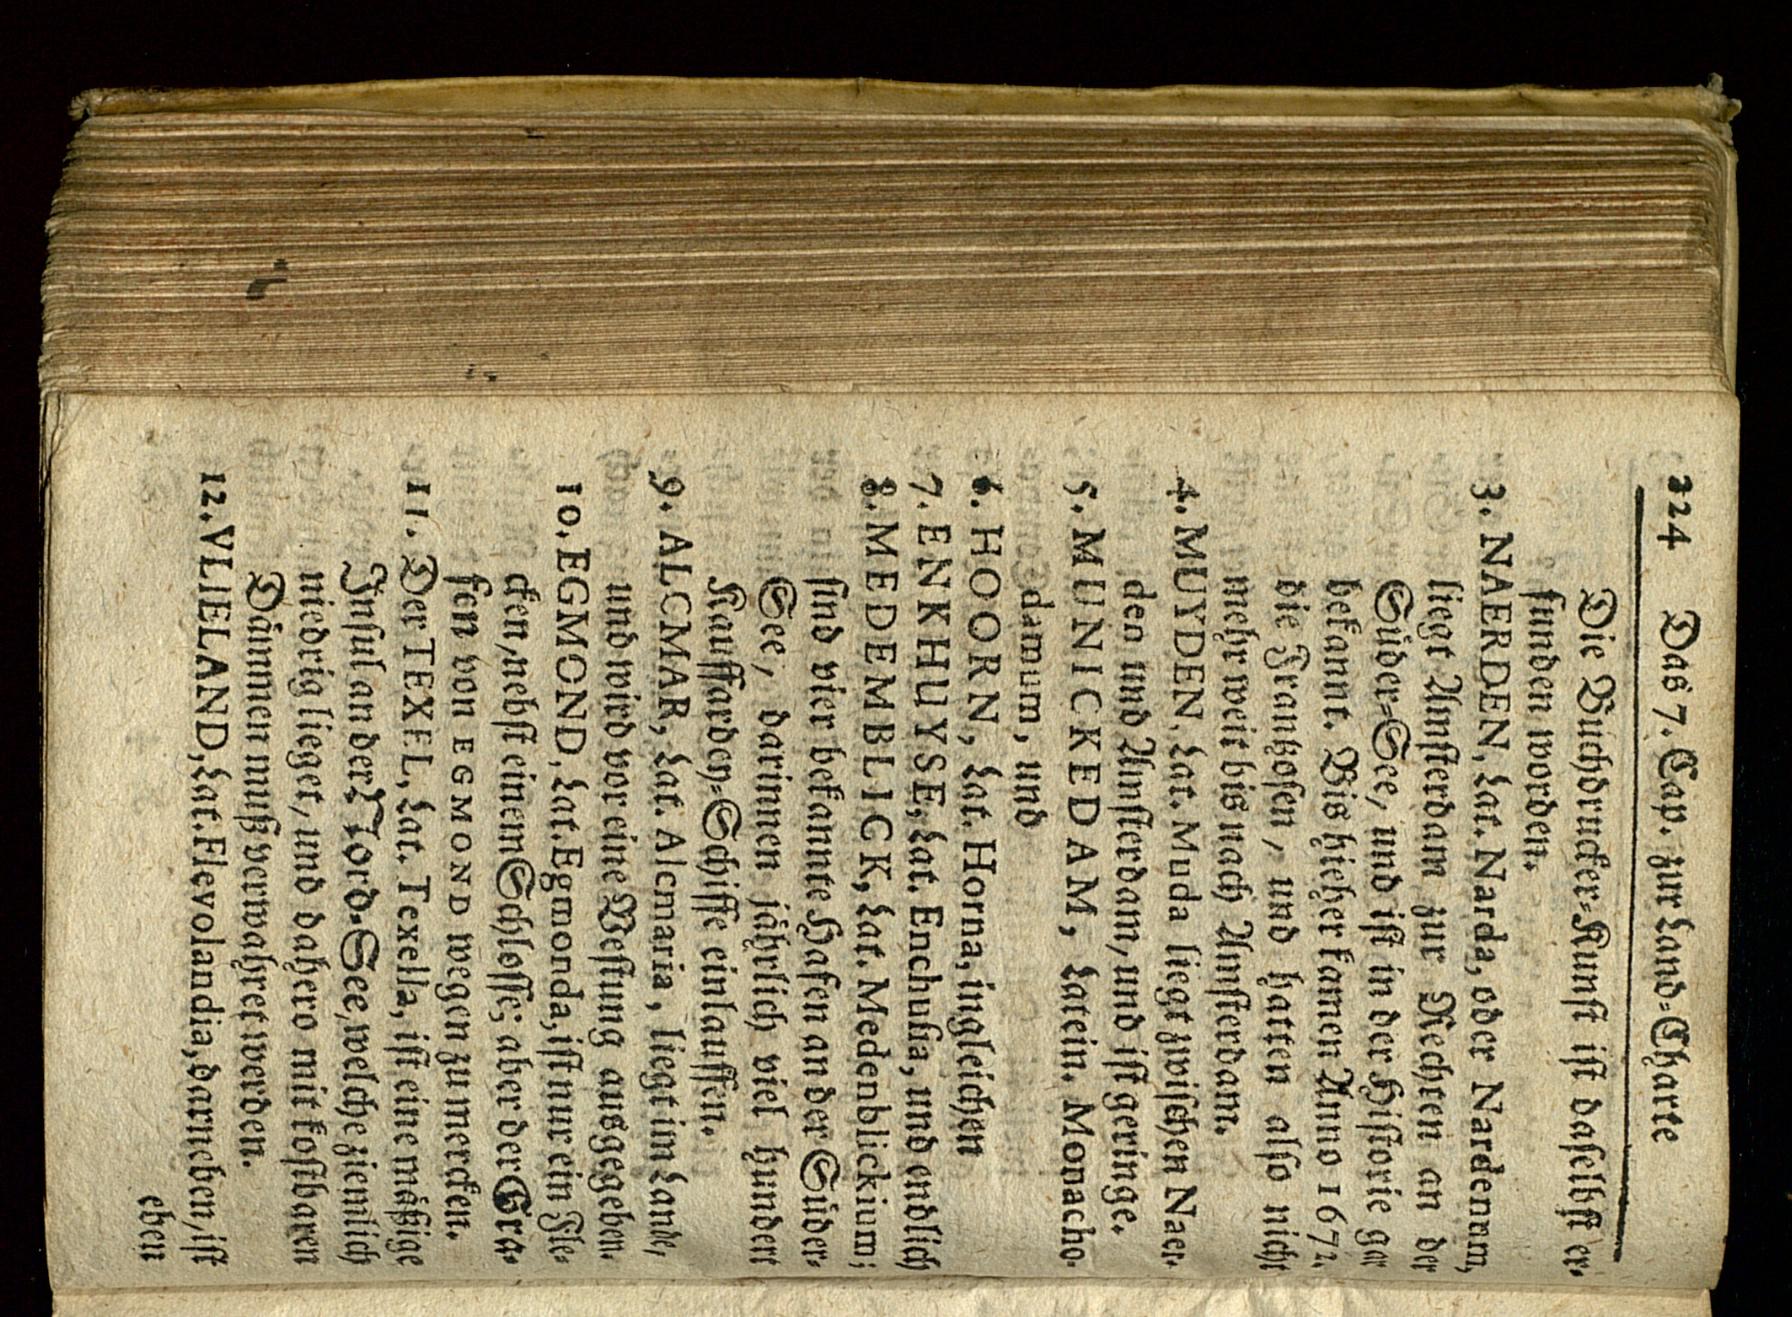 224 Das 7. Cap. zur Land-Charte
Die Buchdrucker-Kunst ist daselbst er-
funden worden.
3. NAERDEN, Lat. Narda, oder Nardenum,
liegt Amsterdam zur Rechten an der
Süder-See, und ist in der Historie gar
bekannt. Bis hieher kamen Anno 1672.
die Frantzosen, und hatten also nicht
mehr weit bis nach Amsterdam.
4. MUYDEN, Lat. Muda liegt zwischen Naer-
den und Amsterdam, und ist geringe.
5. MUNICKEDAM, Latein. Monacho-
damum, und
6. HOORN, Lat. Horna, ingleichen
7. ENKHUYSE, Lat. Enchusa, und endlich
8. MEDEMBLICK, Lat. Medenblickium;
sind vier bekannte Hafen an der Süder-
See, darinnen jährlich viel hundert
Kauffardey-Schiffe einlauffen.
9. ALCMAR, Lat. Alcmaria, liegt im Lande,
und wird vor eine Vestung ausgegeben.
10. EGMOND, Lat. Egmonda, ist nur ein Fle-
cken, nebst einem Schlosse; aber der Gra-
fen von EGMOND wegen zu mercken.
11. Der TEXEL, Lat. Texella, ist eine mäßige
Insul an der Nord-See, welche ziemlich
niedrig lieget, und dahero mit kostbaren
Dämmen muß verwahret werden.
12. VLIELAND, Lat. Flevolandia, darneben, ist
eben